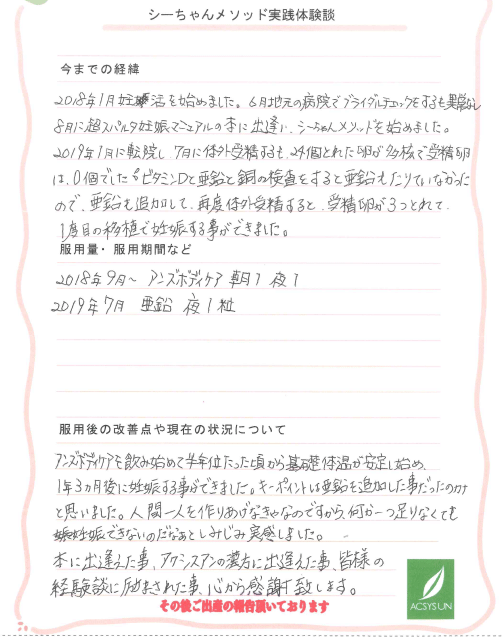 シーちゃんメソッド実践体験談
今までの経緯
2018年1月妊活を始めました。6月地元の病院でブライダルチェックをするも異常なし
8月に超スパルタ妊娠マニュアルの本に出逢い、シーちゃんメソッドを始めました。
2019年1月に転院し7月に体外受精するも、24個とれた卵が多核で受精卵
は、0個でした。ビタミンDと亜鉛と銅の検査をすると亜鉛もたりていなかった
ので、亜鉛も追加して、再度体外受精すると、受精卵が3つとれて、
1度目の移植で妊娠する事ができました。
服用量・服用期間など
2018年9月～ アンズボディケア 朝1 夜1
2019年7月 亜鉛 夜1粒
服用後の改善点や現在の状況について
アンズボディケアを飲み始めて半年位たった頃から基礎体温が安定し始め、
1年3ヵ月後に妊娠する事ができました。キーポイントは亜鉛を追加した事だったのか
と思いました。人間一人を作りあげなきゃなのですから、何か一つ足りなくても
妊娠できないのだなぁとしみじみ実感しました。
本に出逢えた事、アクシスアンの漢方に出逢えた事、皆様の
経験談に励まされた事、心から感謝致します。
その後ご出産の報告頂いております
ACSYSUN